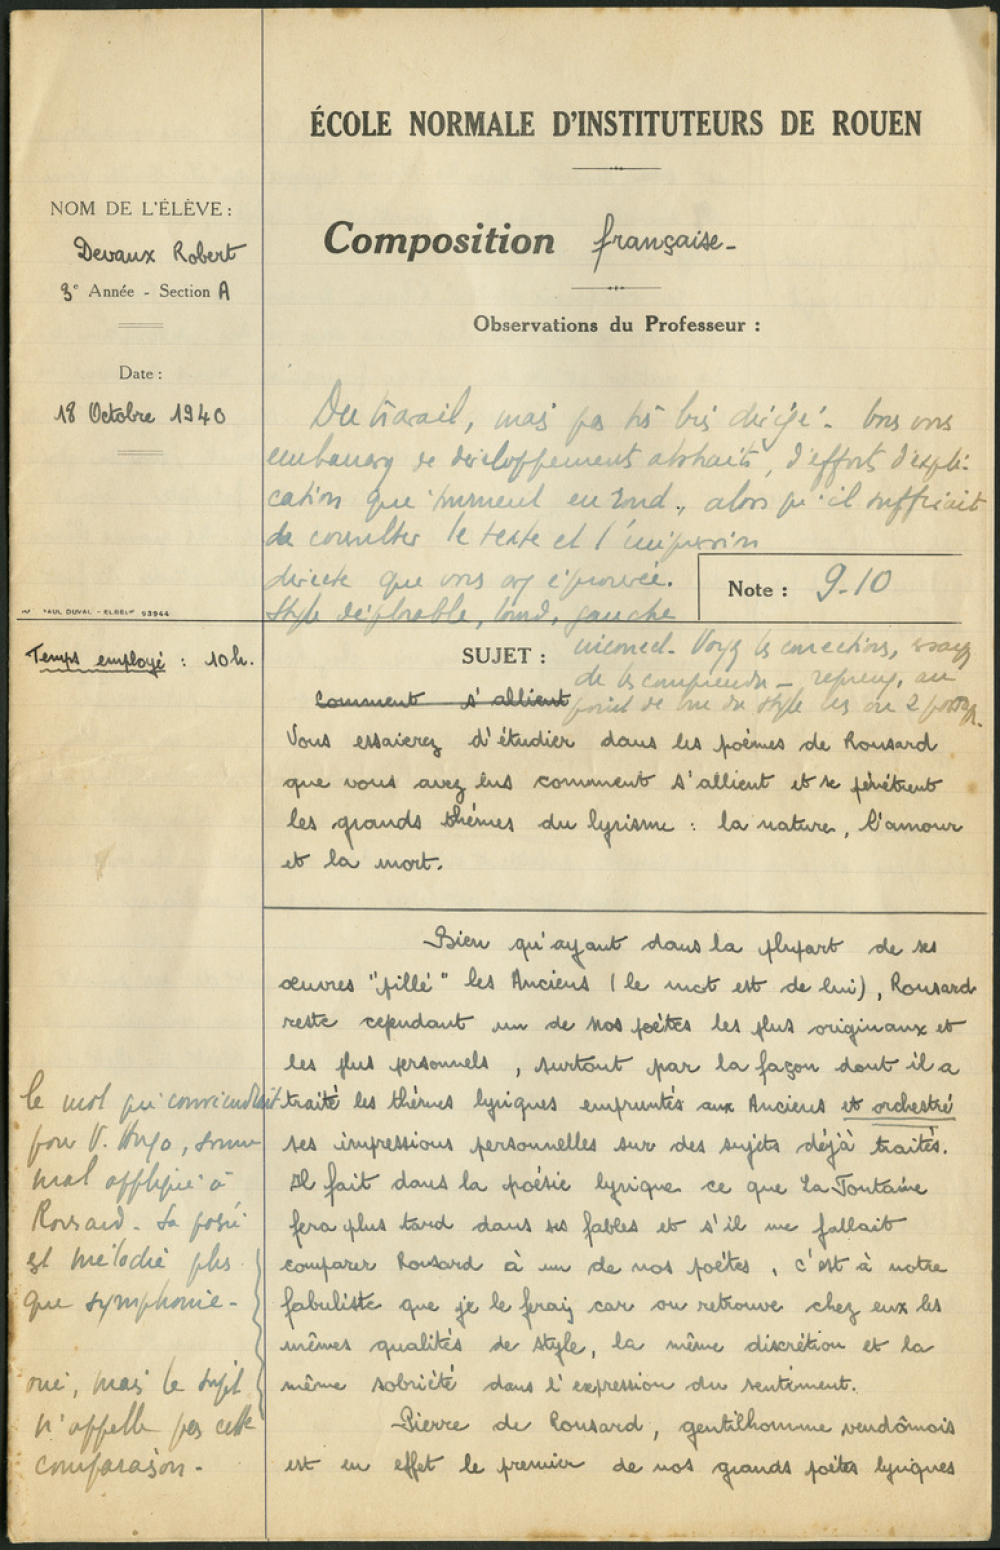 ÉCOLE NORMALE D'INSTITUTEURS DE ROUEN
NOM DE L'ÉLÈVE :
Devaux Robert
3e Année - Section A
Date :
18 Octobre 1940
Composition française -
Observations du Professeur :
Du travail, mais pas très bien dirigé. - Vous vous
embarrassez de développements abstraits, d'efforts d'expli-
cation qui tournent en rond, alors qu'il suffisait
de consulter le texte et l'impression
directe que vous avez éprouvée.
Style déplorable, lourd, gauche
incorrect. Voyez les corrections, essayez
de les comprendre - reprenez, au
point de vue du style les 2 
Note : 9-10
PAUL DUVAL - ELBEUF 93944
Temps employé : 10h.
SUJET :
Comment s'allient
Vous essaierez d'étudier dans les poèmes de Ronsard
que vous avez lus comment s'allient et se pénètrent
les grands thèmes du lyrisme : la nature, l'amour
et la mort.
Bien qu'ayant dans la plupart de ses
œuvres "pillé" les Anciens (le mot est de lui), Ronsard
reste cependant un de nos poètes les plus originaux et
les plus personnels, surtout par la façon dont il a
traité les thèmes lyriques empruntés aux Anciens et orchestré
ses impressions personnelles sur des sujets déjà traités.
Il fait dans la poésie lyrique ce que La Fontaine
fera plus tard dans ses fables et s'il me fallait
comparer Ronsard à un de nos poètes, c'est à notre
fabuliste que je le ferais car on retrouve chez eux les
mêmes qualités de style, la même discrétion et la
même sobriété dans l'expression du sentiment.
Pierre de Ronsard, gentilhomme vendômois
est en effet le premier de nos grands poètes lyriques
le mot qui conviendrait
pour V. Hugo, sonne
mal appliqué à
Ronsard. Sa poésie
est mélodie plus
que symphonie -
oui, mais le sujet
n'appelle pas cette
comparaison -